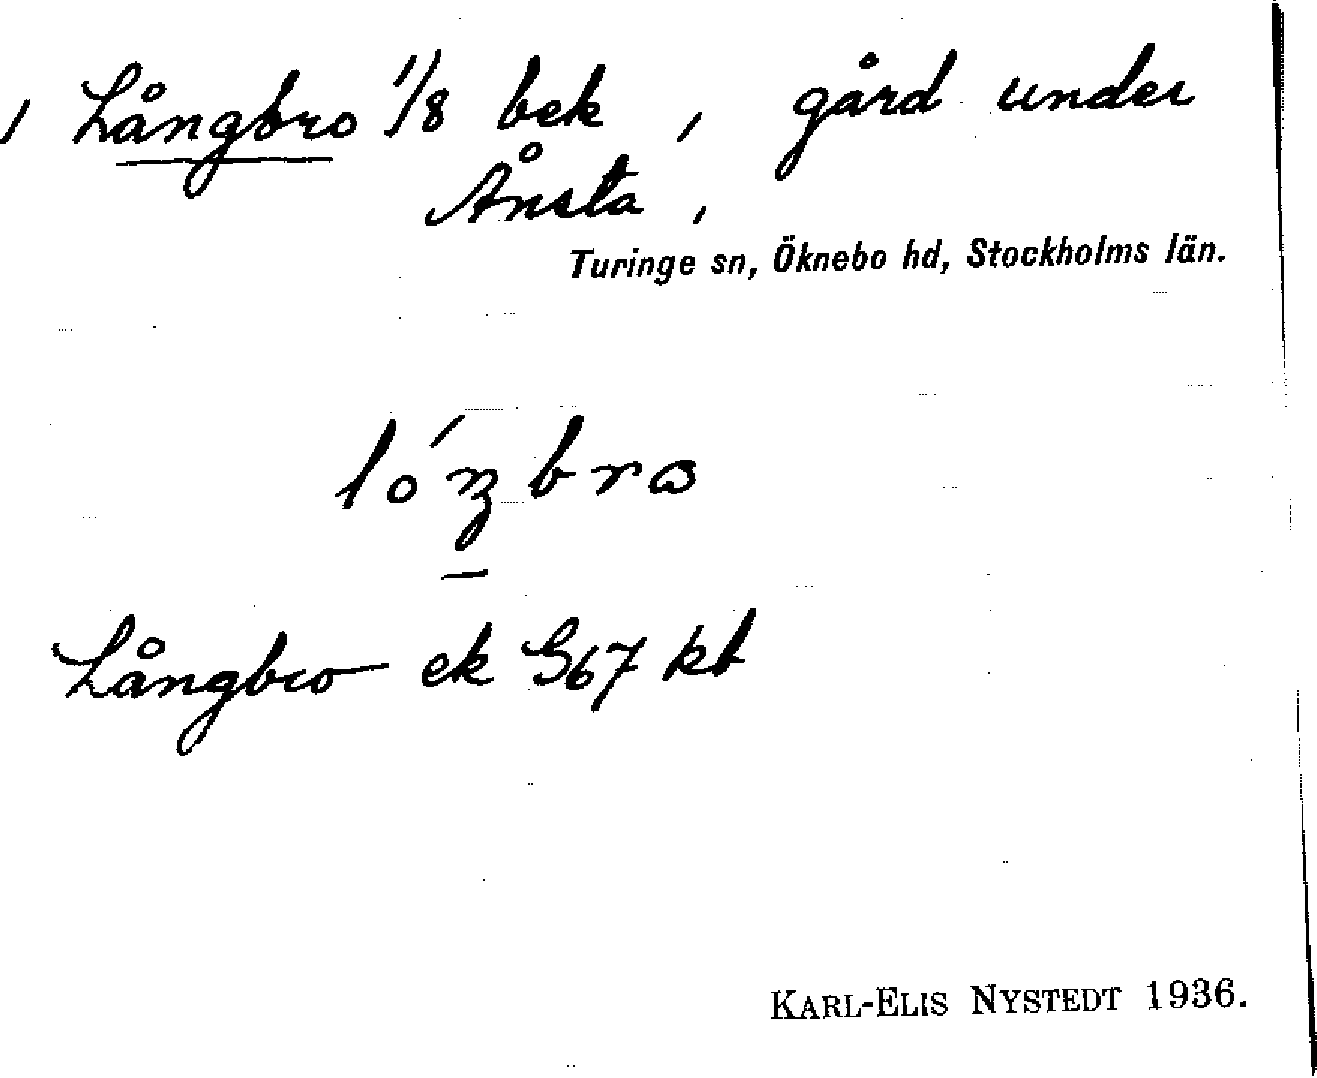 Långbro 1/8 bek, gård under
Ånsta,
Turinge sn, Öknebo hd, Stockholms län.
Långbro ek G67 kt
KARL-ELIS NYSTEDT 1936.